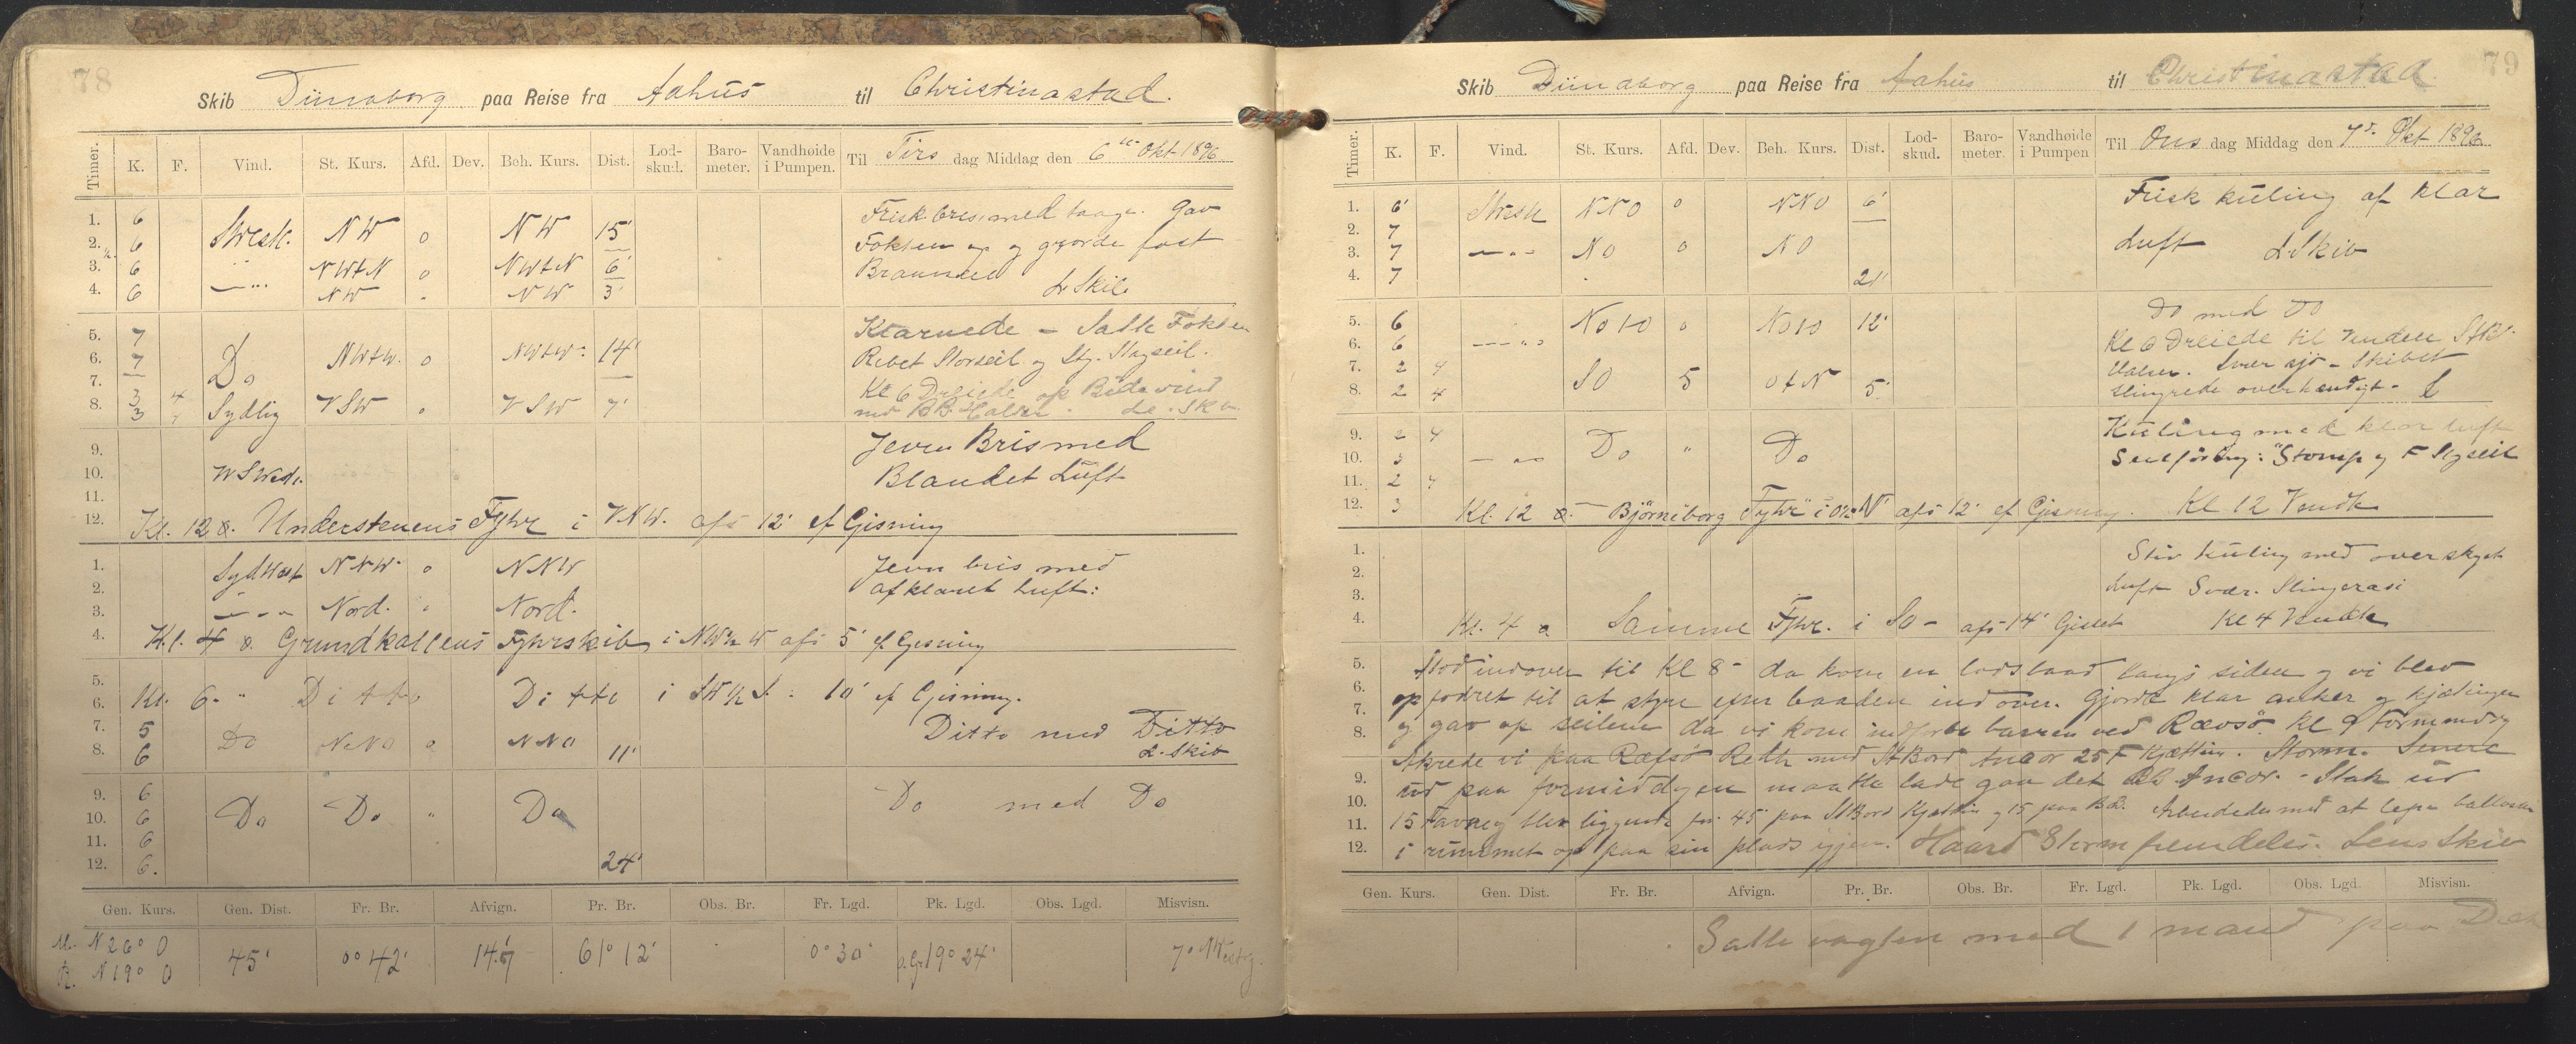 78
Skib Dünaborg paa Reise fra Aahus til Christinastad.
Timer. K. F. Vind. St. Kurs. Afd. Dev. Beh. Kurs. Dist. Lod-skud. Baro-meter. Vandhøide i Pumpen. Til Tirs dag Middag den 6te Okt 1896
1. 6 Frisk bris med taage. Gav
2. 6 SWestl. NW 0 NW 15' Fokken op og gjorde fast
3. 6 NWtN 0 NWtN 6' Bramseil
4. 6 NW NW 3' L. Skib
5. 7 Klarnede - Satte Fokken
6. 7 Do NWtW. 0 NWtW. 14' Rebet Storseil og Stg. Stagseil.
7. 3 4 Kl 6 Dreiede op Bidevind
8. 3 Sydlig VSW VSW 7' med BB. Halser. L. Skib
9. Jevn Bris med
10. WSWestl. Blandet Luft
11.
12. Kl. 12 Understenens Fyhr i VNW. afs 12' ef Gisning
1. SydVest NNW. 0 NNW Jevn bris med
2. afklaret Luft:
3. Nord. Nord.
4. Kl. 4 Grundkallens Fyhrskib i NW½W afs 5' ef Gisning
5.
6. Kl. 6 Ditto Ditto i SW½S. 10' ef Gisning.
7. 5 Do NNO NNO Ditto med Ditto
8. 6 11' L. Skib
9. 6 Do med Do
10. 6 Do Do " Do
11. 6
12. 6. 24'
Gen. Kurs. Gen. Dist. Fr. Br. Afvign. Pr. Br. Obs. Br. Fr. Lgd. Pk. Lgd. Obs. Lgd. Misvisn.
M. N 26° O 45' 0° 42' 14.7 61° 12' 0° 30' 19° 24' 7° Westlg.
R. N 19° O
79
Skib Dünaborg paa Reise fra Aahus til Christinastad.
Timer. K. F. Vind. St. Kurs. Afd. Dev. Beh. Kurs. Dist. Lod-skud. Baro-meter. Vandhøide i Pumpen Til Ons dag Middag den 7d. Okt 1896
1. 6' SWestl NNO 0 NNO 6' Frisk kuling af klar
2. 7
3. 7 NO 0 NO Luft L. Skib
4. 7 21'
5. 6 NOtO 0 NOtO 12' Do med Do
6. 6 Kl 6 Dreiede til Vinden StB.
7. 2 4 Halser. Svær sjö - Skibet
8. 2 4 SO 5 OtN 5' slingrede overhendigt. L
9. 2 4 Kuling med klar luft
10. 3 Do " Do Seilföring: Stomp og F Stgseil
11. 2 4
12. 3 Kl. 12 Björneborg Fyhr i N afs 12' ef Gisning. Kl 12 Vendte
1. Stiv kuling med overskyet
2. Luft Svær. Slingrasi
3.
4. Kl. 4 Samme Fyhr. i SO - afs 14' Gisset Kl 4 Vendte
5. Stod indover til Kl 8 - da kom en lodsbaad langs siden og vi blev
6. opfodret til at styre efter baaden indover. Gjorde klar anker og kjædingen
7. og gav op seilene da vi kom indforbi barren ved Rævsö Kl 9 Formiddag
8. Akrede vi paa Ræfsö Reth med StBord Ancor 25 F Kjætting. Storm. Senere
9. ud paa formiddagen maatte lade gaa det BB Ancor. - Stak ud
10. 15 Favne og blev liggende for 45 paa StBord Kjætting og 15 paa BB. Arbeidede med at legge ballasten
11. i rummet op paa sin plads igjen. Haard Storm fremdeles. Lens Skib
12.
Gen. Kurs. Gen. Dist. Fr. Br. Afvign. Pr. Br. Obs. Br. Fr. Lgd. Pk. Lgd. Obs. Lgd. Misvisn.
Satte vagten med 1 mand paa Dæk